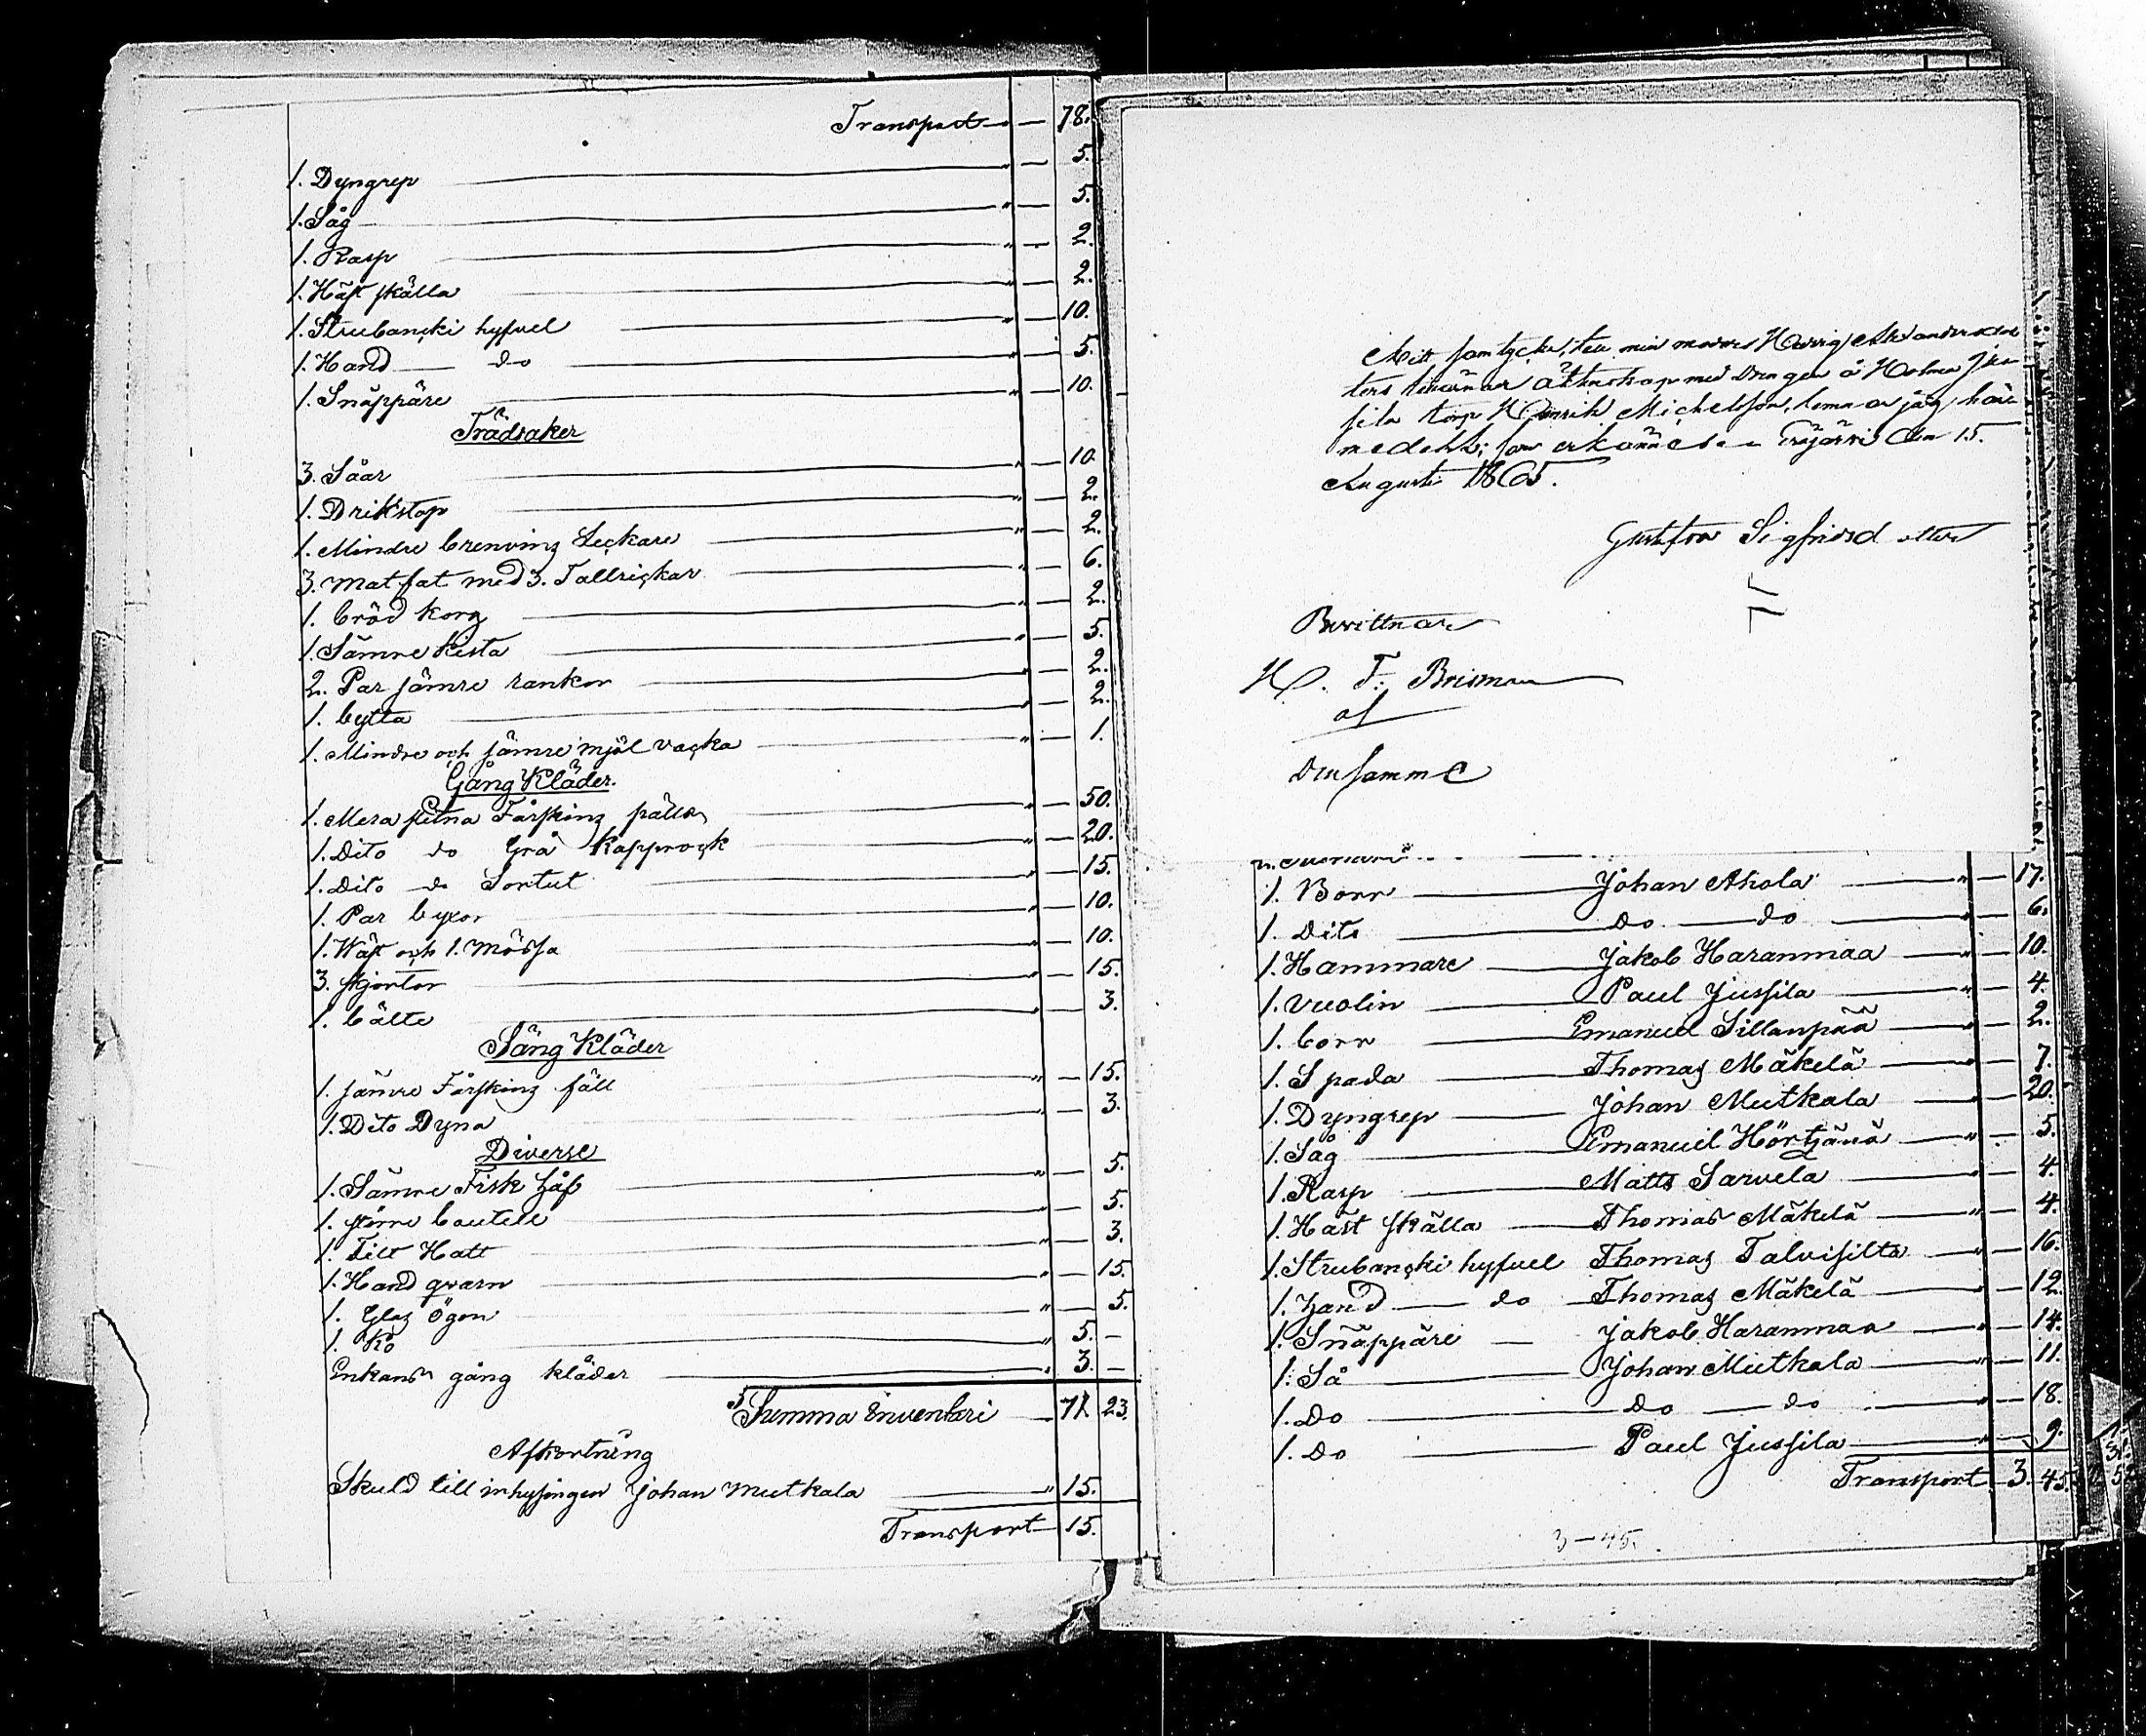 Transport — 78.
1. Dyngrep " — 5.
1. Såg " — 5.
1. Rasp " — 2.
1. Häst skälla " — 2.
1. Strubancki hyfvel " — 10.
1. Hand — do " — 5.
1. Snäppäre " — 10.
Trädsaker
3. Såar " — 10.
1. Drikstop " — 2.
1. Mindre brenvinz Leckare " — 2.
3. mat fat med 3. Tallrickar " — 6.
1. bröd korg " — 2.
1. Sämre kista " — 5.
2. Par sämre rankor " — 2.
1. bytta " — 2.
1. Mindre och sämre mjöl vacka " — 1.
Gång Kläder.
1. Mera slitna Fårskinz pälls " — 50.
1. Dito do Grå Kapprock " — 20.
1. Dito do Sortut " — 15.
1. Par byxor " — 10.
1. Wäst och 1. Mössa " — 10.
3. skjortor " — 15.
1. bälte " — 3.
Säng Kläder
1. sämre Fårskinz fäll " — 15.
1. Dito Dyna " — 3.
Diverse
1. Sämre Fisk håf " — 5.
1. större boutell " — 5.
1. Filt Hatt " — 3.
1. Hand qvarn " — 15.
1. Glaz ögon " — 5.
1. Ko " 5. —
Enkans gång kläder " 3. —
Summa Inventari — 71. 23.
Afkortning
Skuld till inhysingen Johan Mutkala " 15.
Transport — 15.
Mitt samtycke, till min moders
med Drengen å Holmen
torp Henrik Michelsson, lemnar jag här
medelst; som erkännes Evijärvi den 15.
Augusti 1865.
Gustfva Sigfrisd otter
Bevittnar
H. F. Brisman
af
Densamme
1. Borr — Johan Ahola " — 17.
1. Dito — do — do " — 6.
1. Hammare — Jakob Haranmaa " — 10.
1. Vuolin — Paul Jussila " — 4.
1. borr — Emanuel Sillanpää " — 2.
1. Spada — Thomas Mäkelä " — 7.
1. Dyngrep — Johan Mutkala " — 20.
1. Såg — Emanuel Hörtjänä " — 5.
1. Rasp — Matts Sarvela " — 4.
1. Häst skälla — Thomas Mäkelä " — 4.
1. Strubancki hyfvel Thomas Talvisilta " — 16.
1. hand — do — Thomas Mäkelä " — 12.
1. Snäppäre — Jakob Haranmaa " — 14.
1. Så — Johan Mutkala " — 11.
1. Do — do — do " — 18.
1. Do — Paul Jussila " — 9.
Transport 3. 45.
3 — 45.